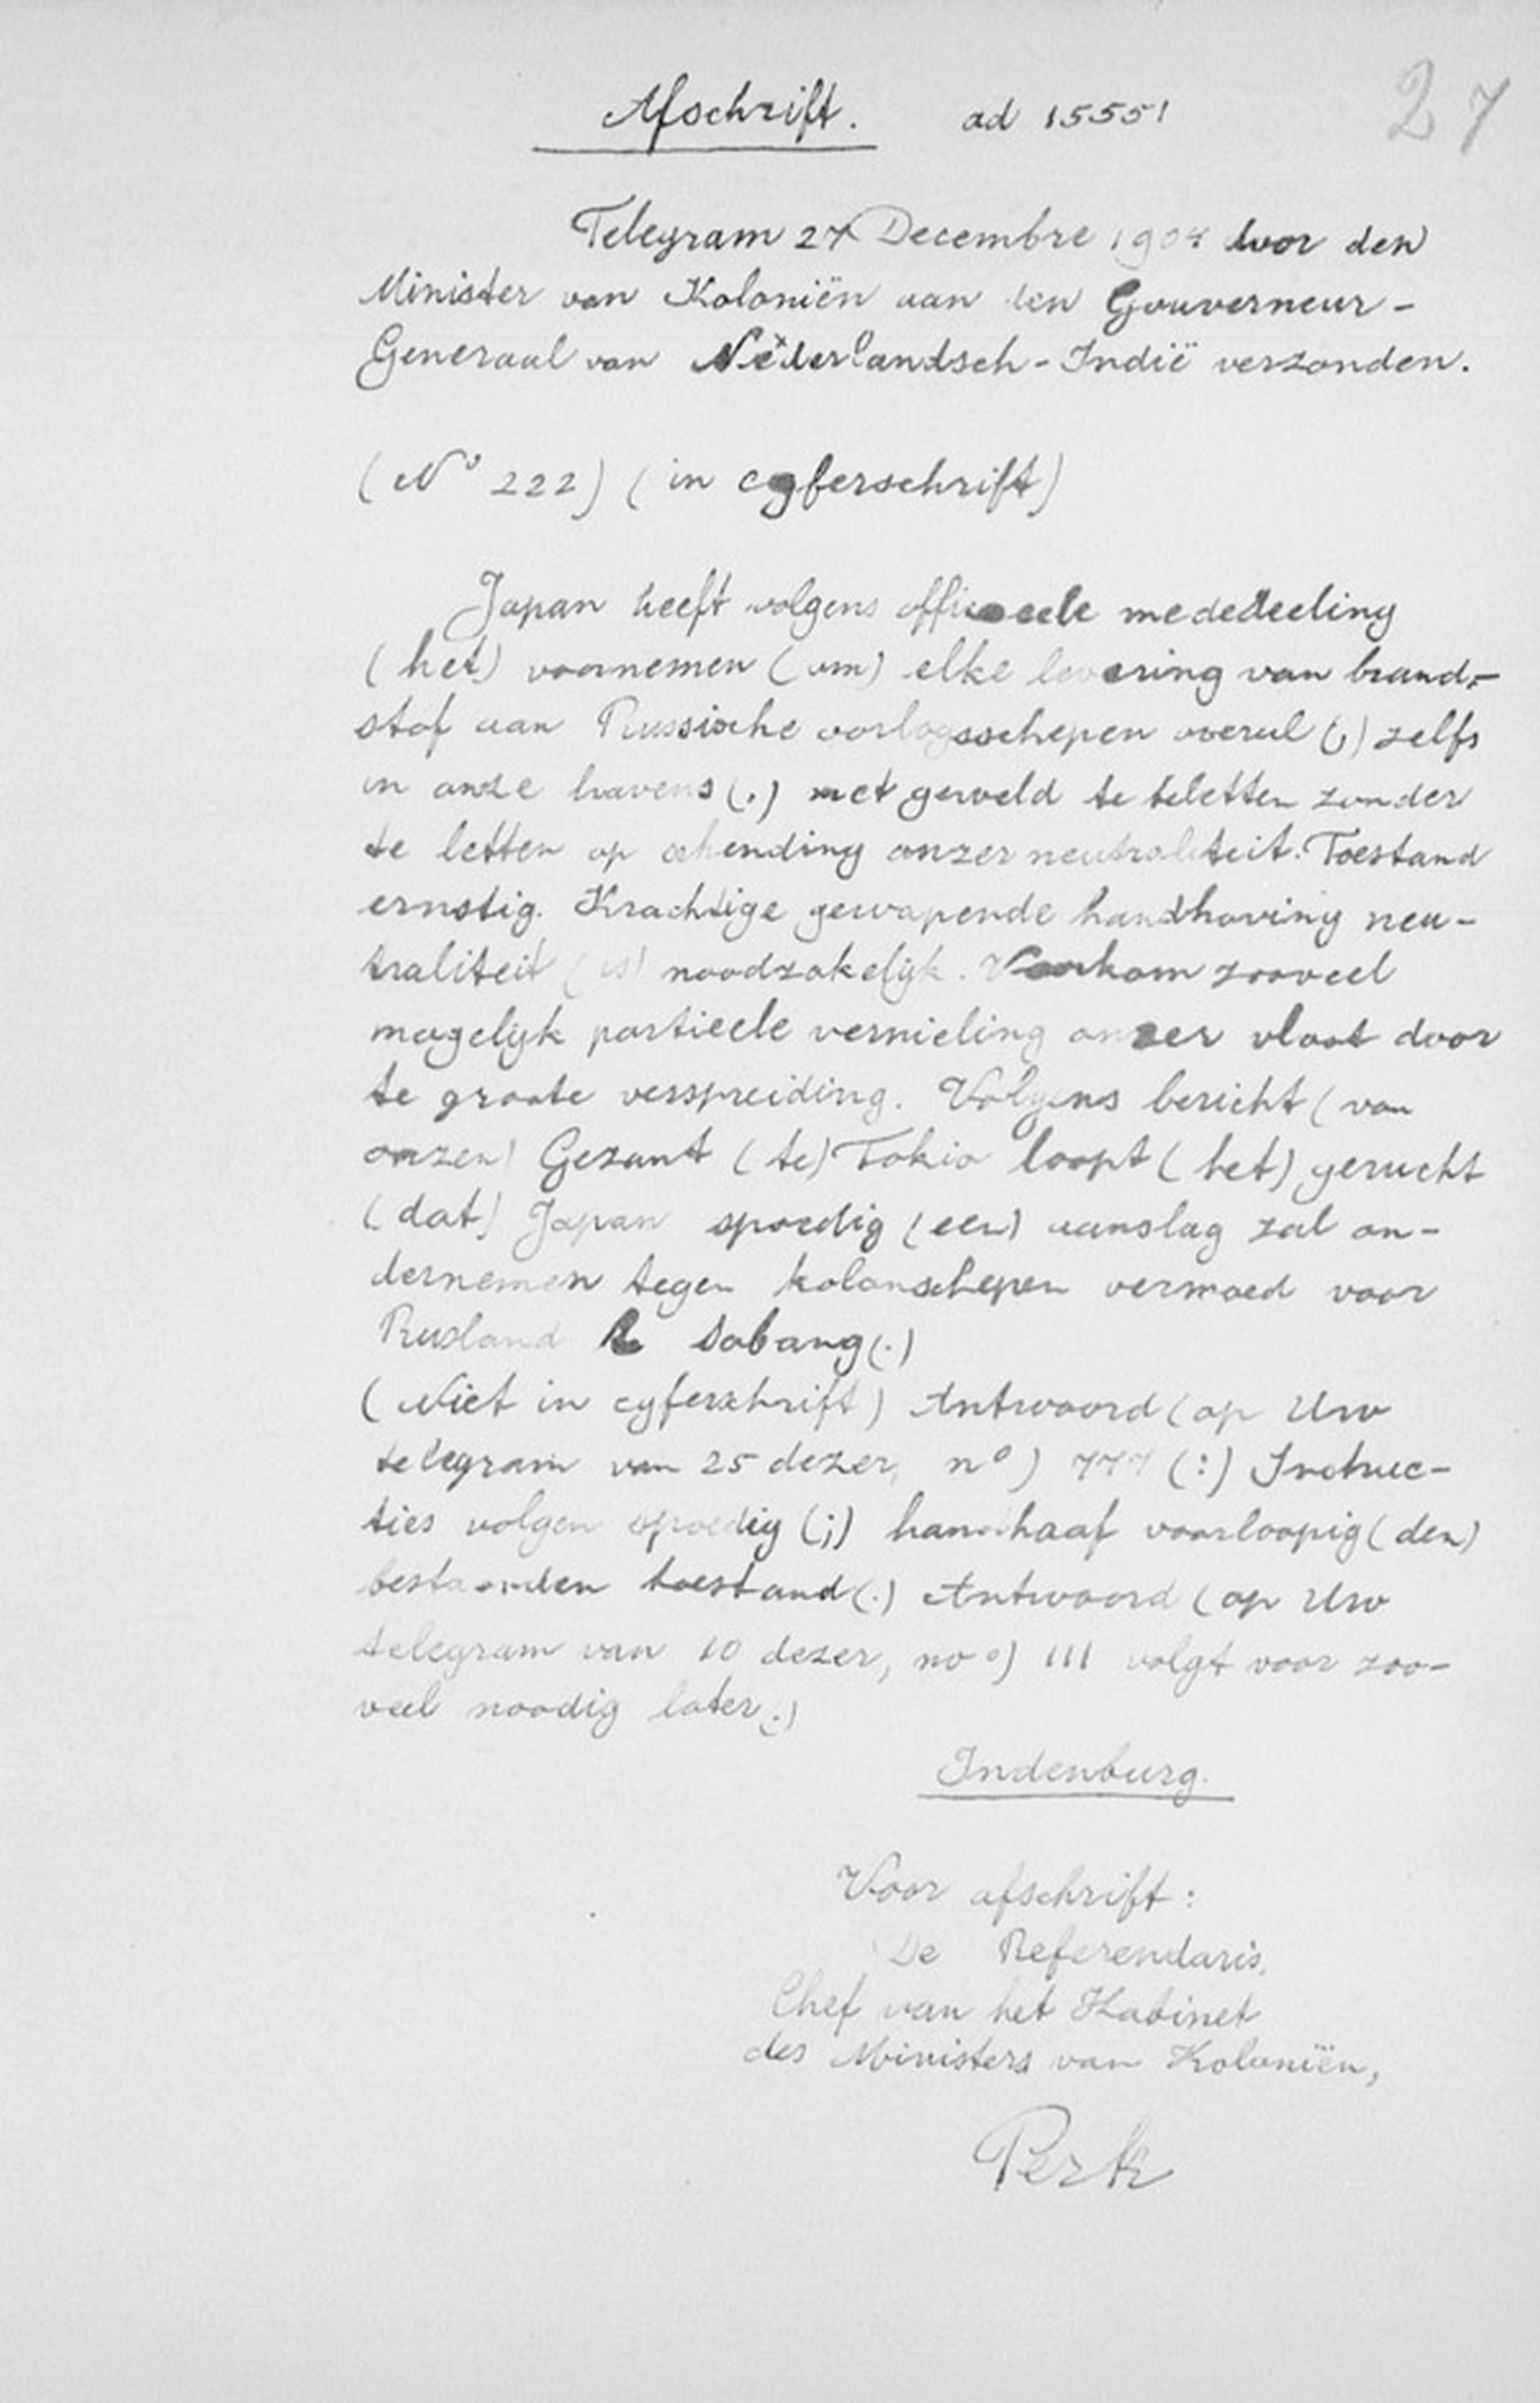 Afschrift. ad 15551
27
Telegram 27 Decembre 1904 door den
Minister van Koloniën aan den Gouverneur-
Generaal van Nederlandsch-Indië verzonden.
(No 222) (in cyferschrift)
Japan heeft volgens officieele mededeeling
(het) voornemen (om) elke levering van brand-
stof aan Russische oorlogsschepen overal (,) zelfs
in onze havens (.) met geweld te beletten zonder
te letten op schending onzer neutraliteit. Toestand
ernstig. Krachtige gewapende handhaving neu-
traliteit (is) noodzakelijk. Voorkom zooveel
mogelijk partieele vernieling onzer vloot door
te groote verspreiding. Volgens bericht (van
onzen) Gezant (te) Tokio loopt (het) gerucht
(dat) Japan spoedig (een) aanslag zal on-
dernemen tegen kolenschepen vermoed voor
Rusland te Sabang (.)
(Niet in cyferschrift) Antwoord (op Uw
telegram van 25 dezer, no) 777 (:) Instruc-
ties volgen spoedig (;) handhaaf voorloopig (den)
bestaanden toestand (.) Antwoord (op Uw
telegram van 10 dezer, no) 111 volgt voor zoo-
veel noodig later (.)
Indenburg.
Voor afschrift:
De Referendaris,
Chef van het Kabinet
des Ministers van Koloniën,
Perk